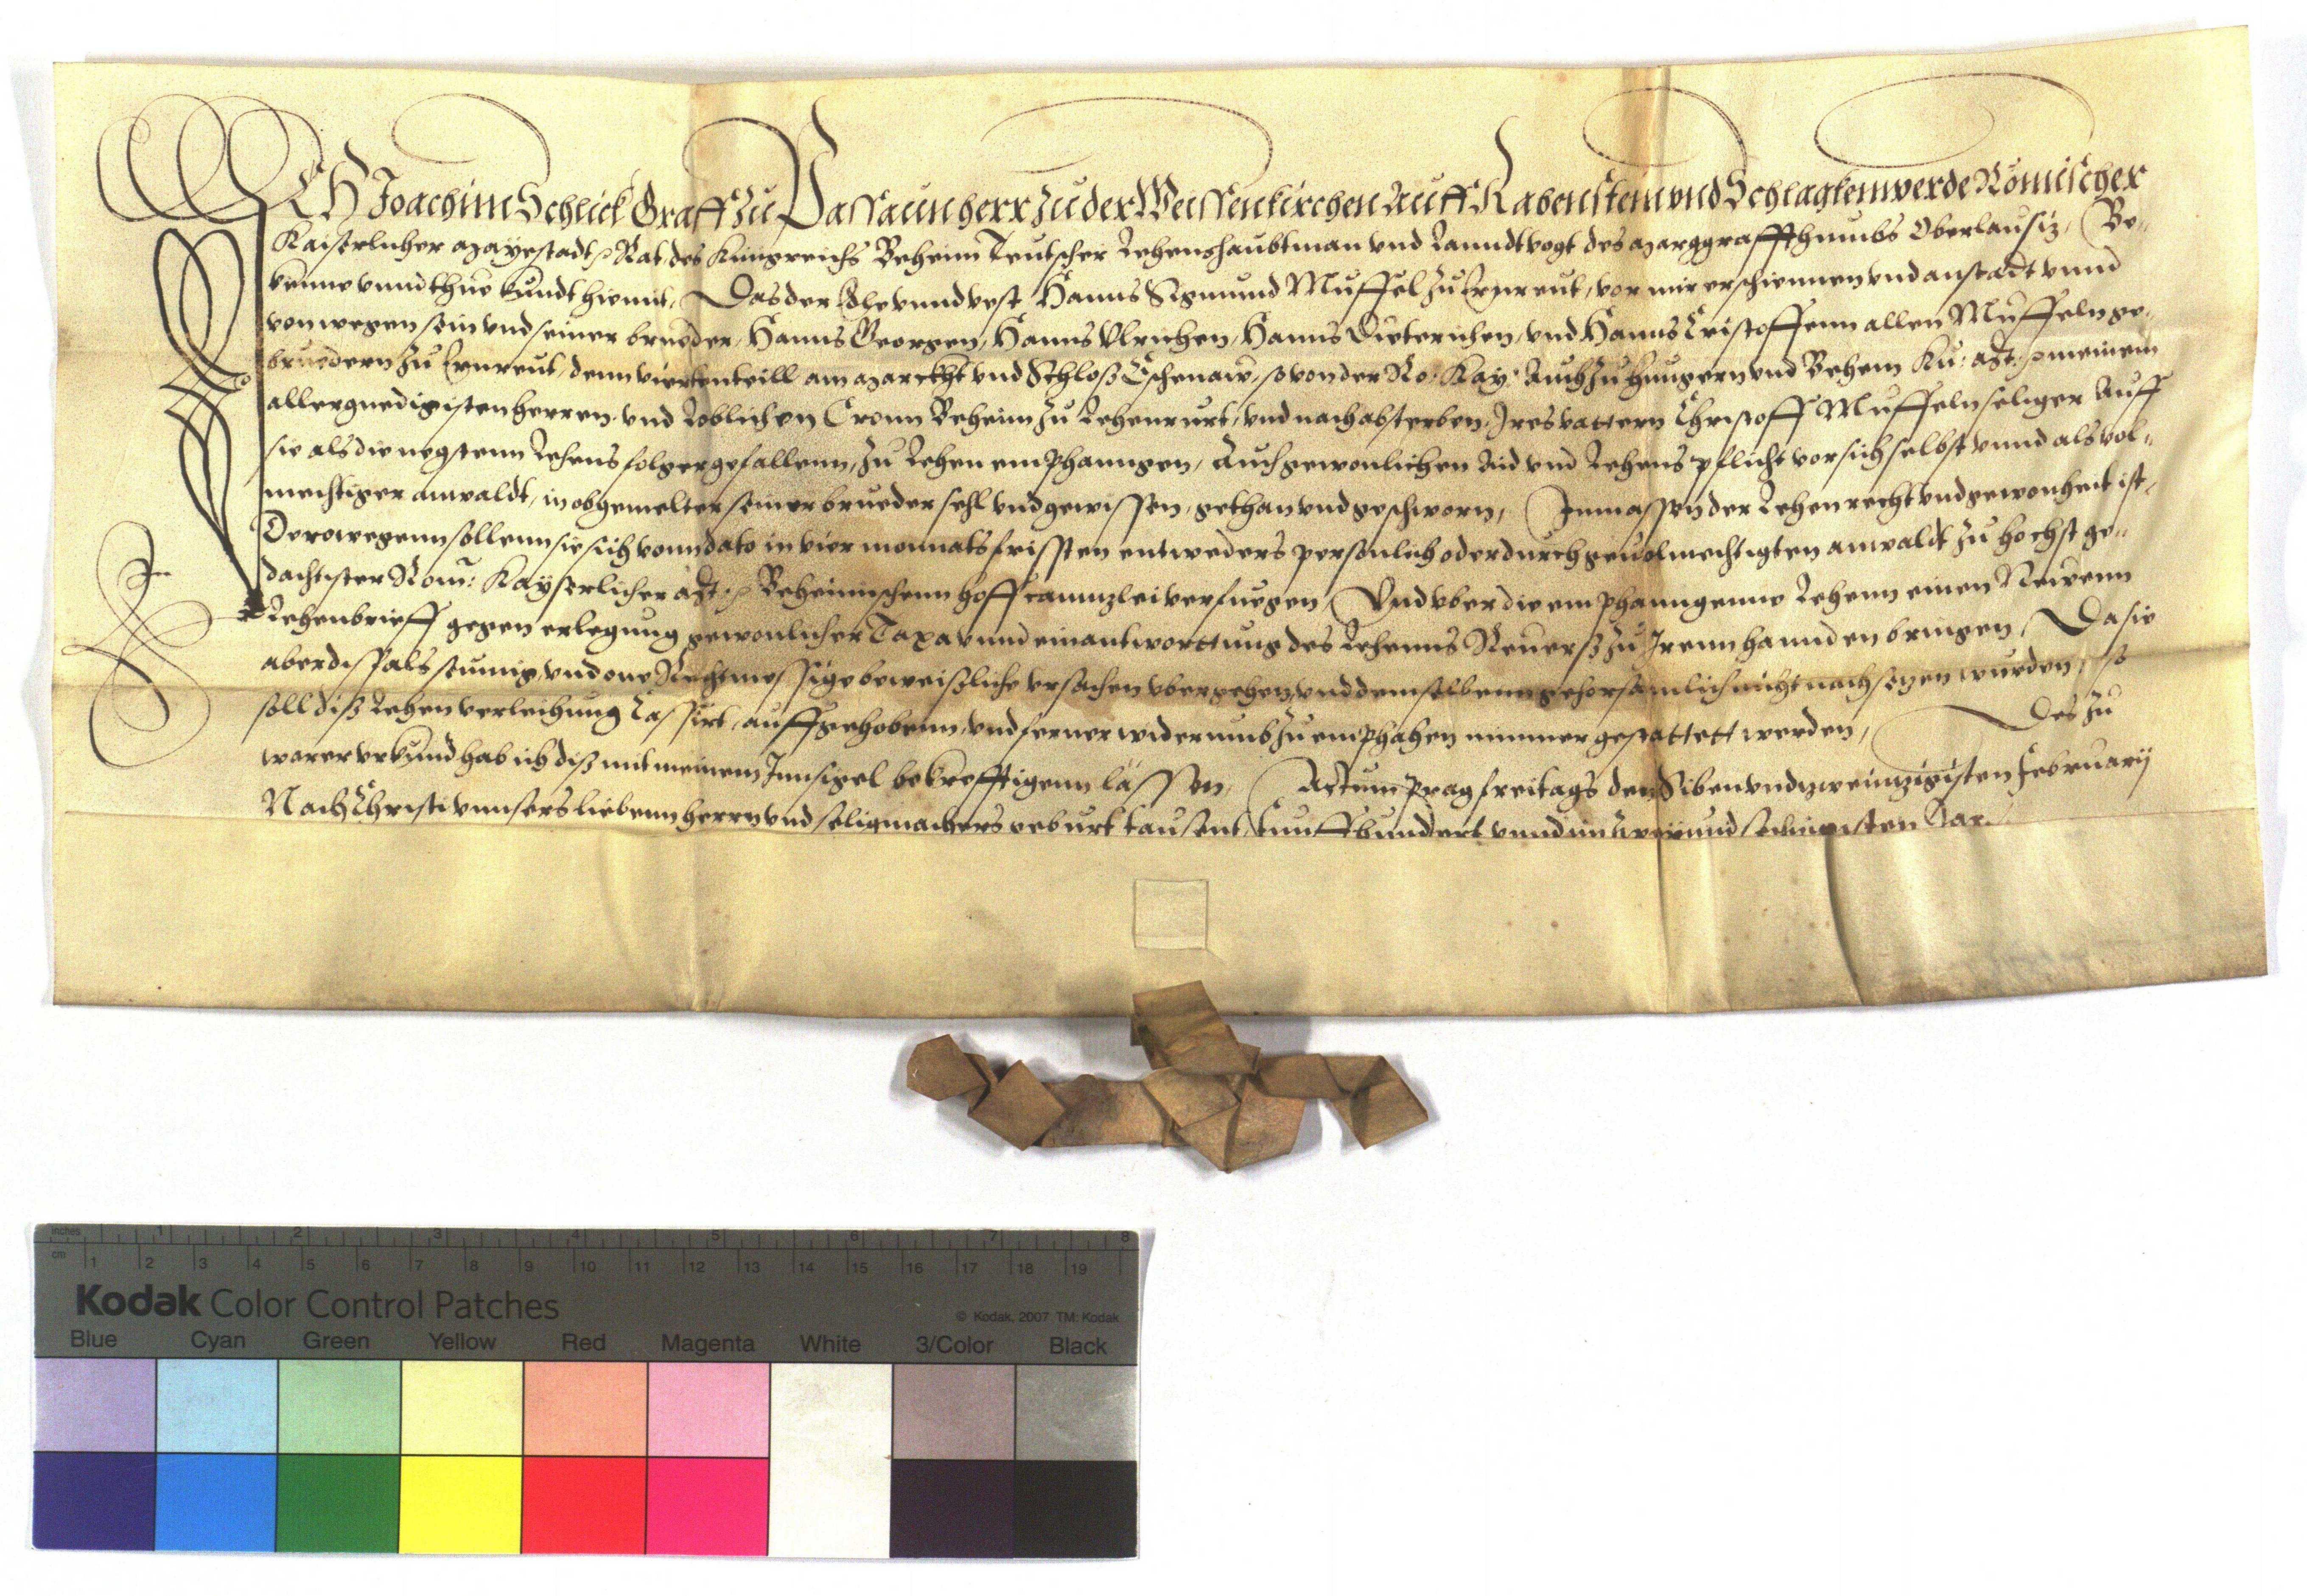 ICH Joachim Schlick Graff zu Passaun herr zu der Weissenkirchen Auff Rabenstein vnd Schlagkenwerde Römischer
Kaiserlicher Mayestadt Rat des Künigreichs Beheim Teutscher Lehenshaubtman vnd Lanndtvogt des Marggraffthumbs Oberlausiz, Be-
kenne vnnd thue kundt hiemit, Das der Edle vnnd vest Hanns Sigmund Muffel zu Ermreut, vor mir erschiennen vnd anstadt vnnd
von wegen sein vnd seiner brueder, Hanns Georgen, Hanns Vlrichen, Hanns Dieterichen, vnd Hanns Cristoffenn allen Muffeln ge-
bruedern zu Ermreut, denn vierttenteill am Marckht vnd Schloß Eschenaw, so von der Rö: Kay: Auch zu Hungern vnd Behem Kü: Mt: meinem
allergnedigisten herren, vnd Loblichen Cronn Beheim zu Lehen rürt, vnd nach absterben, Jres vattern Christoff Muffeln seliger Auff
sie als die negstenn Lehensfolger gefallenn, zu Lehen emphanngen, Auch gewonlichen Aid vnd Lehens pflicht vor sich selbst vnnd als vol-
mechtiger anwaldt, in obgemelter seiner brueder sehl vnd gewissen, gethan vnd geschworn, Jnmassen der Lehenrecht vnd gewonheit ist,
Derowegenn sollenn sie sich vonn dato in vier monnats frissten entweders persönlich oder durch geuolmechtigten anwaldt zu hochst ge-
dachtister Röm: Kayserlicher Mt: Behemischenn hoffcannzlei verfuegen, Vnd vber die emphanngenne Lehenn einen Newenn
Lehenbrieff gegen erlegung gewonlicher Taxa vnnd einantworttung des Lehenns Reuerß zu Jrenn hannden bringen, Da sie
aber dißfals seumig, vnd one Rechtmessige beweißliche vrsachen vbergehen, vnd demselbenn gehorsamlich nicht nachsezen wurden, so
soll diß Lehen verleihung Cassirt, auffgehobenn, vnd ferner widerumb zu emphahen nimmer gestattett werden, Des zu
warer vrkund hab ich diß mit meinem Jnnsigel bekrefftigenn lassen, Actum Prag freitags den Siben vnd zweinzigisten February
Nach Christi vnnsers liebenn herrn vnd seligmachers geburt tausent, funffhundert vnnd im zwey vnd sechzigisten Jar.
inches 1 2 3 4 5 6 7 8
cm 1 2 3 4 5 6 7 8 9 10 11 12 13 14 15 16 17 18 19
Kodak Color Control Patches
© Kodak, 2007 TM: Kodak
Blue Cyan Green Yellow Red Magenta White 3/Color Black